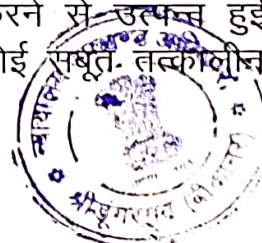 करने से उत्पन्न हुई
कोई सबूत तत्कालीन
न्यायालय
श्रीडूंगरगढ़ (बीकानेर)